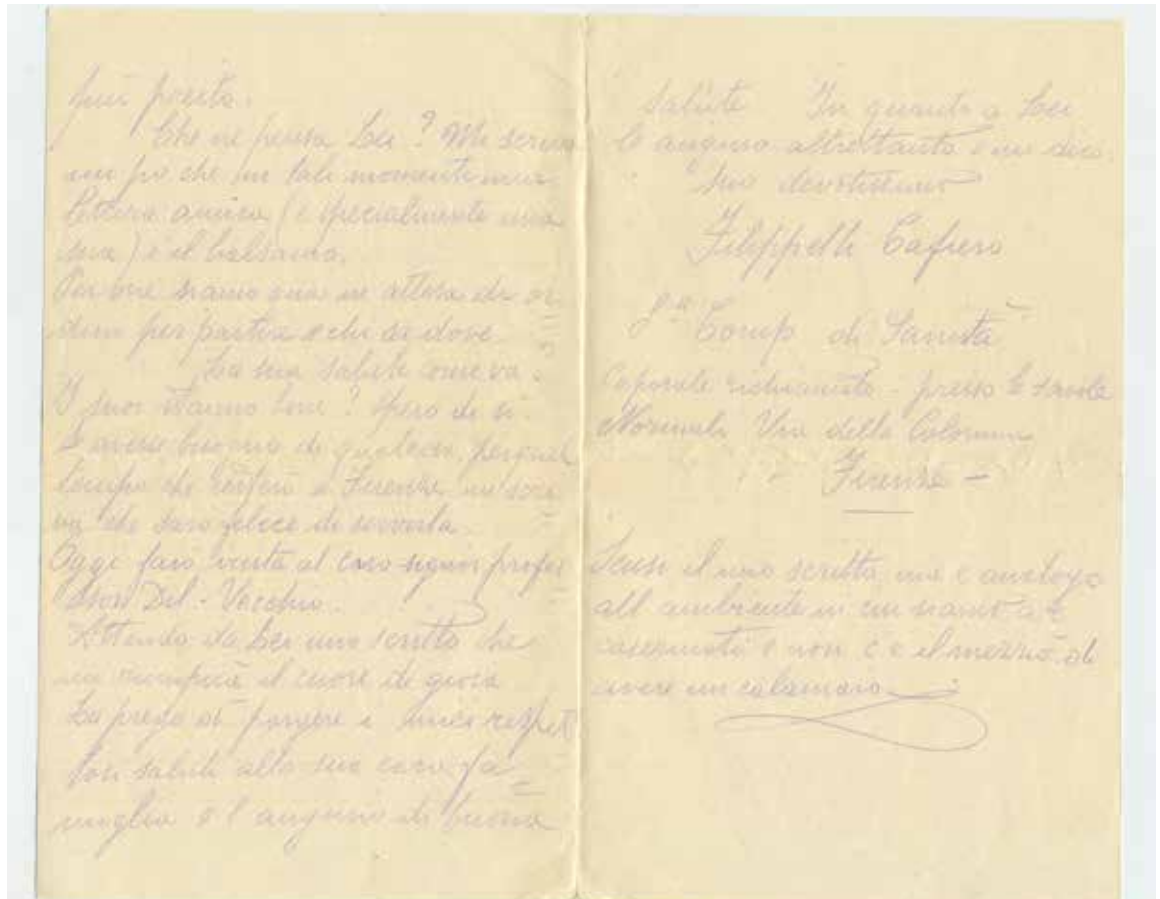 più presto.
Che ne pensa Lei? Mi scriva
un po che in tali momenti una
lettera amica (e specialmente una
sua) è il balsamo.
Per ora siamo qua in attesa di or
dini per partire e chi sa dove
La sua salute come va.
I suoi stanno bene? Spero di si.
Se avesse bisogno di qualcosa, per quel
tempo che resterò a Firenze mi scri
va che sarò felice di servirla.
Oggi farò visita al caro signor profes
sor Del-Vecchio.
Attendo da Lei uno scritto che
mi riempirà il cuore di gioia
La prego di porgere i miei rispet
tosi saluti alla sua cara fa
miglia e l'augurio di buona
salute In quanto a Lei
le auguro altrettanto e mi dico
suo devotissimo
Filippelli Cafiero
Comp di Sanità
Caporale richiamato - presso le scuole
Normali Via della Colonna
Firenze -
Scusi il mio scritto ma è analogo
all ambiente in cui siamo ac
casermati e non c'è il mezzo di
avere un calamaio